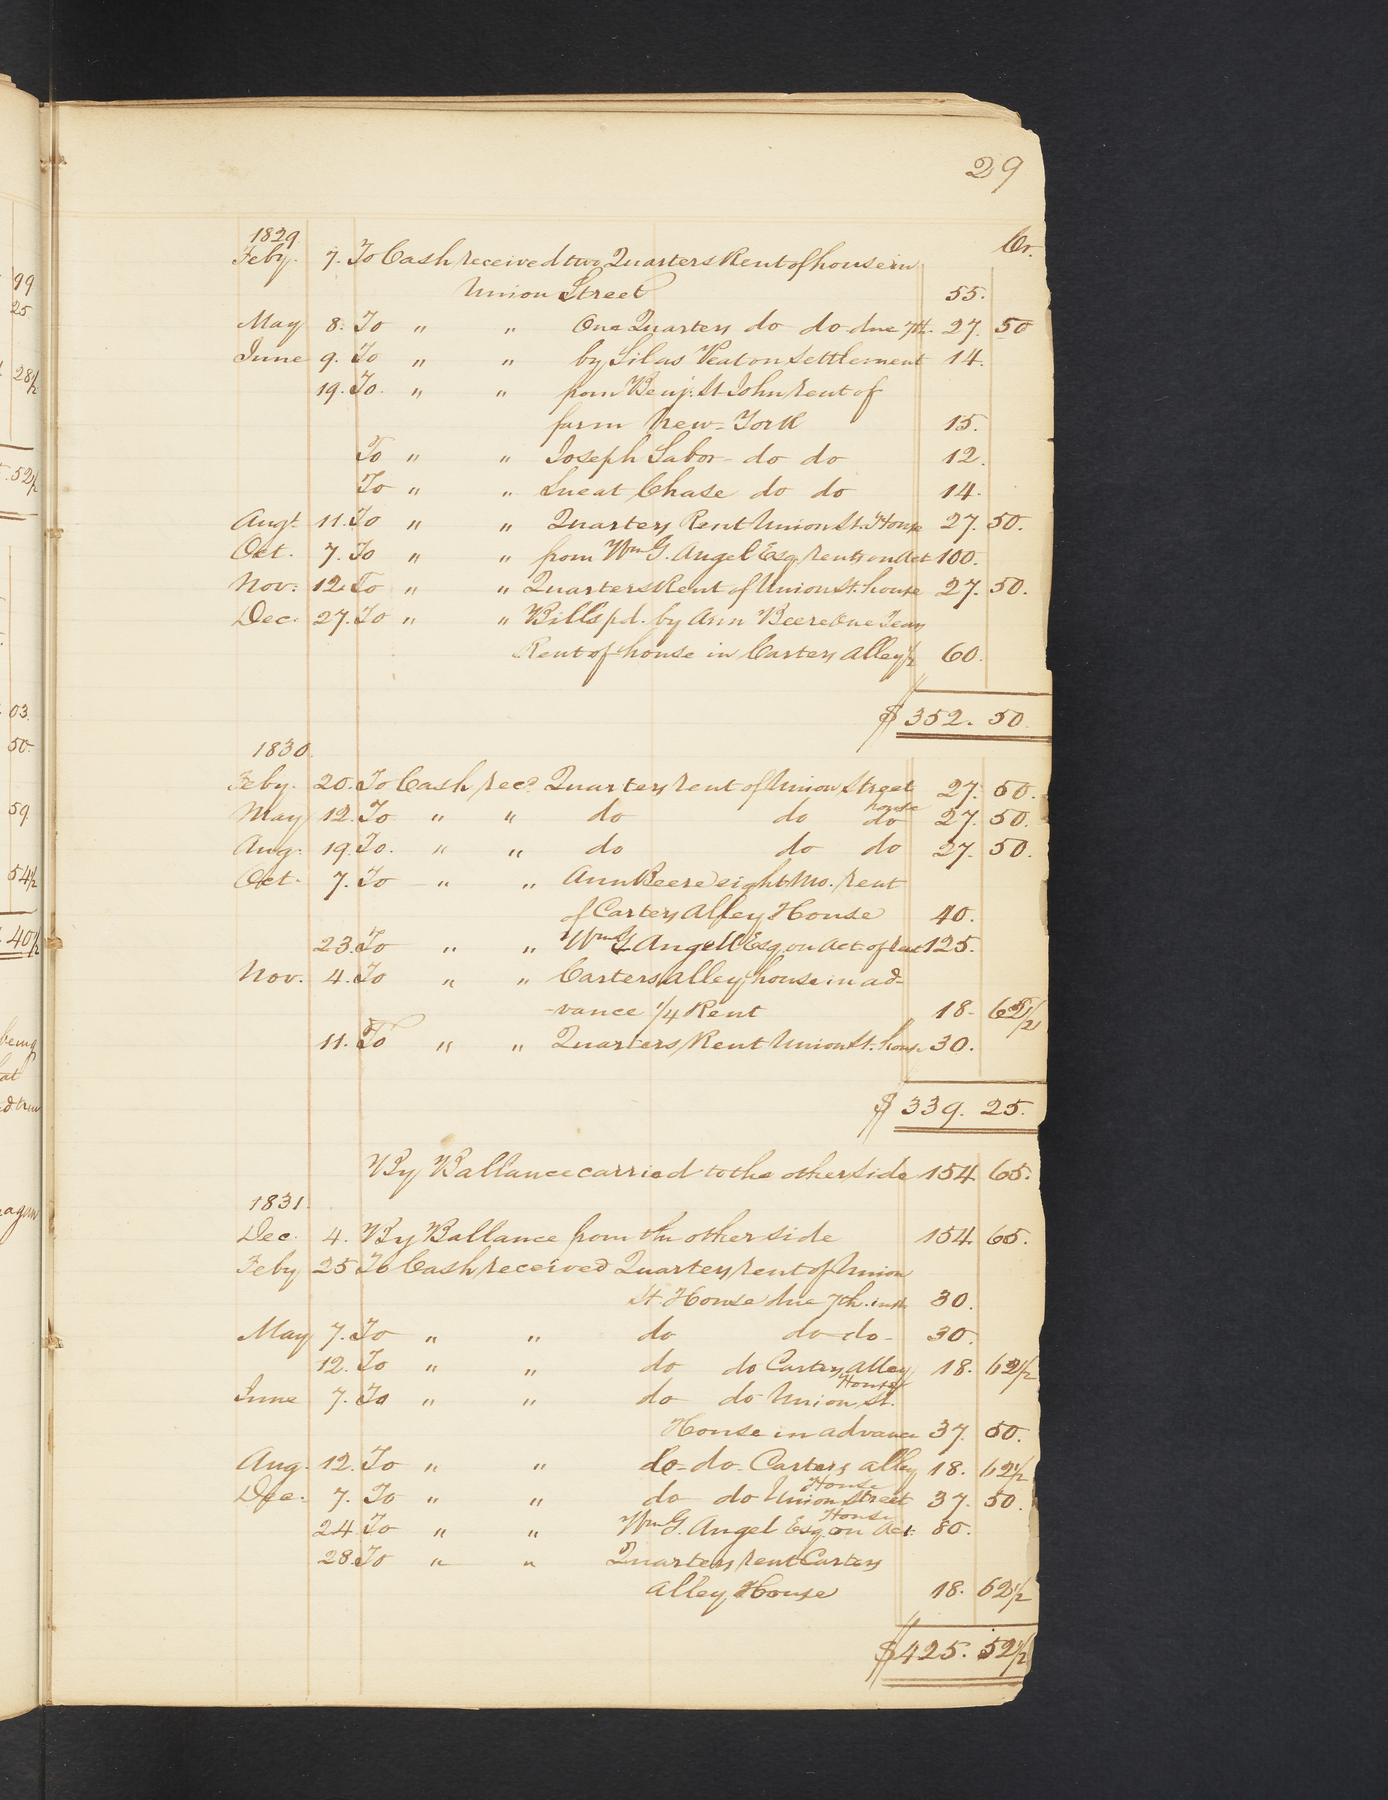 29
1829. Cr.
Feby. 7. To Cash received two Quarters Rent of house in
Union Street 55.
May 8. To " " One Quarters do do due 7th. 27. 50
June 9. To " " by Silas Veaton settlement 14.
19. To. " " from Benj. St. John rent of
farm New-York 15.
To " " Joseph Sabor- do do 12.
To " " Chase do do 14.
Augt. 11. To " " Quarters Rent Union St. House 27. 50.
Oct. 7. To " " from Wm G. Angel Esq. rents on Act 100.
Nov. 12. To " " Quarters Rent of Union St. house 27. 50.
Dec. 27. To " " Bills pd. by Ann Beere One Year
Rent of house in Carters Alley 60.
$352. 50
1830.
Feby. 20. To Cash rec'd Quarters rent of Union Street 27. 50.
house
May 12. To " " do do do 27. 50.
Aug. 19. To. " " do do do 27. 50.
Oct. 7. To " " Ann Beere eight Mo. rent
of Carters Alley House 40.
23. To " " Wm G Angell Esq. on Act of rent 125.
Nov. 4. To " " Carters alley house in ad-
-vance 1/4 Rent 18- 62 1/2
11. To " " Quarters Rent Union St. house 30.
$339. 25.
By Ballance carried to the other side 154 65.
1831.
Dec. 4. By Ballance from the other side 154. 65.
Feby 25 To Cash received Quarters rent of Union
St. House due 7th. inst. 30.
May 7. To " " do do do- 30.
12. To " " do do Carters Alley 18. 62 1/2
House
June 7. To " " do do Union St.
House in advance 37. 50.
Aug. 12. To " " do- do- Carters alley 18. 62 1/2
House
Dec. 7. To " " do do Union Street 37. 50.
House
24. To " " Wm G. Angel Esq. on Act. 80.
28. To " " Quarters rent Carters
Alley House 18. 62 1/2
$425. 52 1/2
99
25
28 1/2
52 1/2
03.
50-
59.
54 1/2
40 1/2
being
at